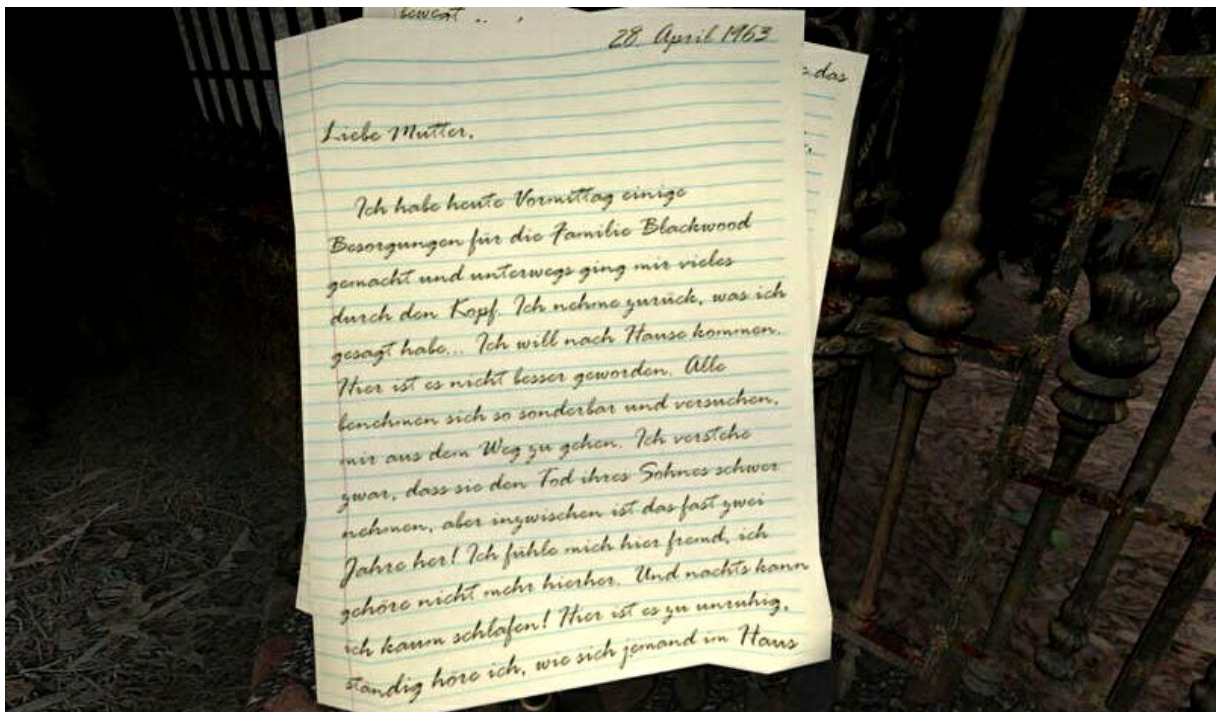 bewegt ..
28. April 1963
das
Liebe Mutter,
Ich habe heute Vormittag einige
Besorgungen für die Familie Blackwood
gemacht und unterwegs ging mir vieles
durch den Kopf. Ich nehme zurück, was ich
gesagt habe... Ich will nach Hause kommen.
Hier ist es nicht besser geworden. Alle
benehmen sich so sonderbar und versuchen,
mir aus dem Weg zu gehen. Ich verstehe
zwar, dass sie den Tod ihres Sohnes schwer
nehmen, aber inzwischen ist das fast zwei
Jahre her! Ich fühle mich hier fremd, ich
gehöre nicht mehr hierher. Und nachts kann
ich kaum schlafen! Hier ist es zu unruhig,
ständig höre ich, wie sich jemand im Haus